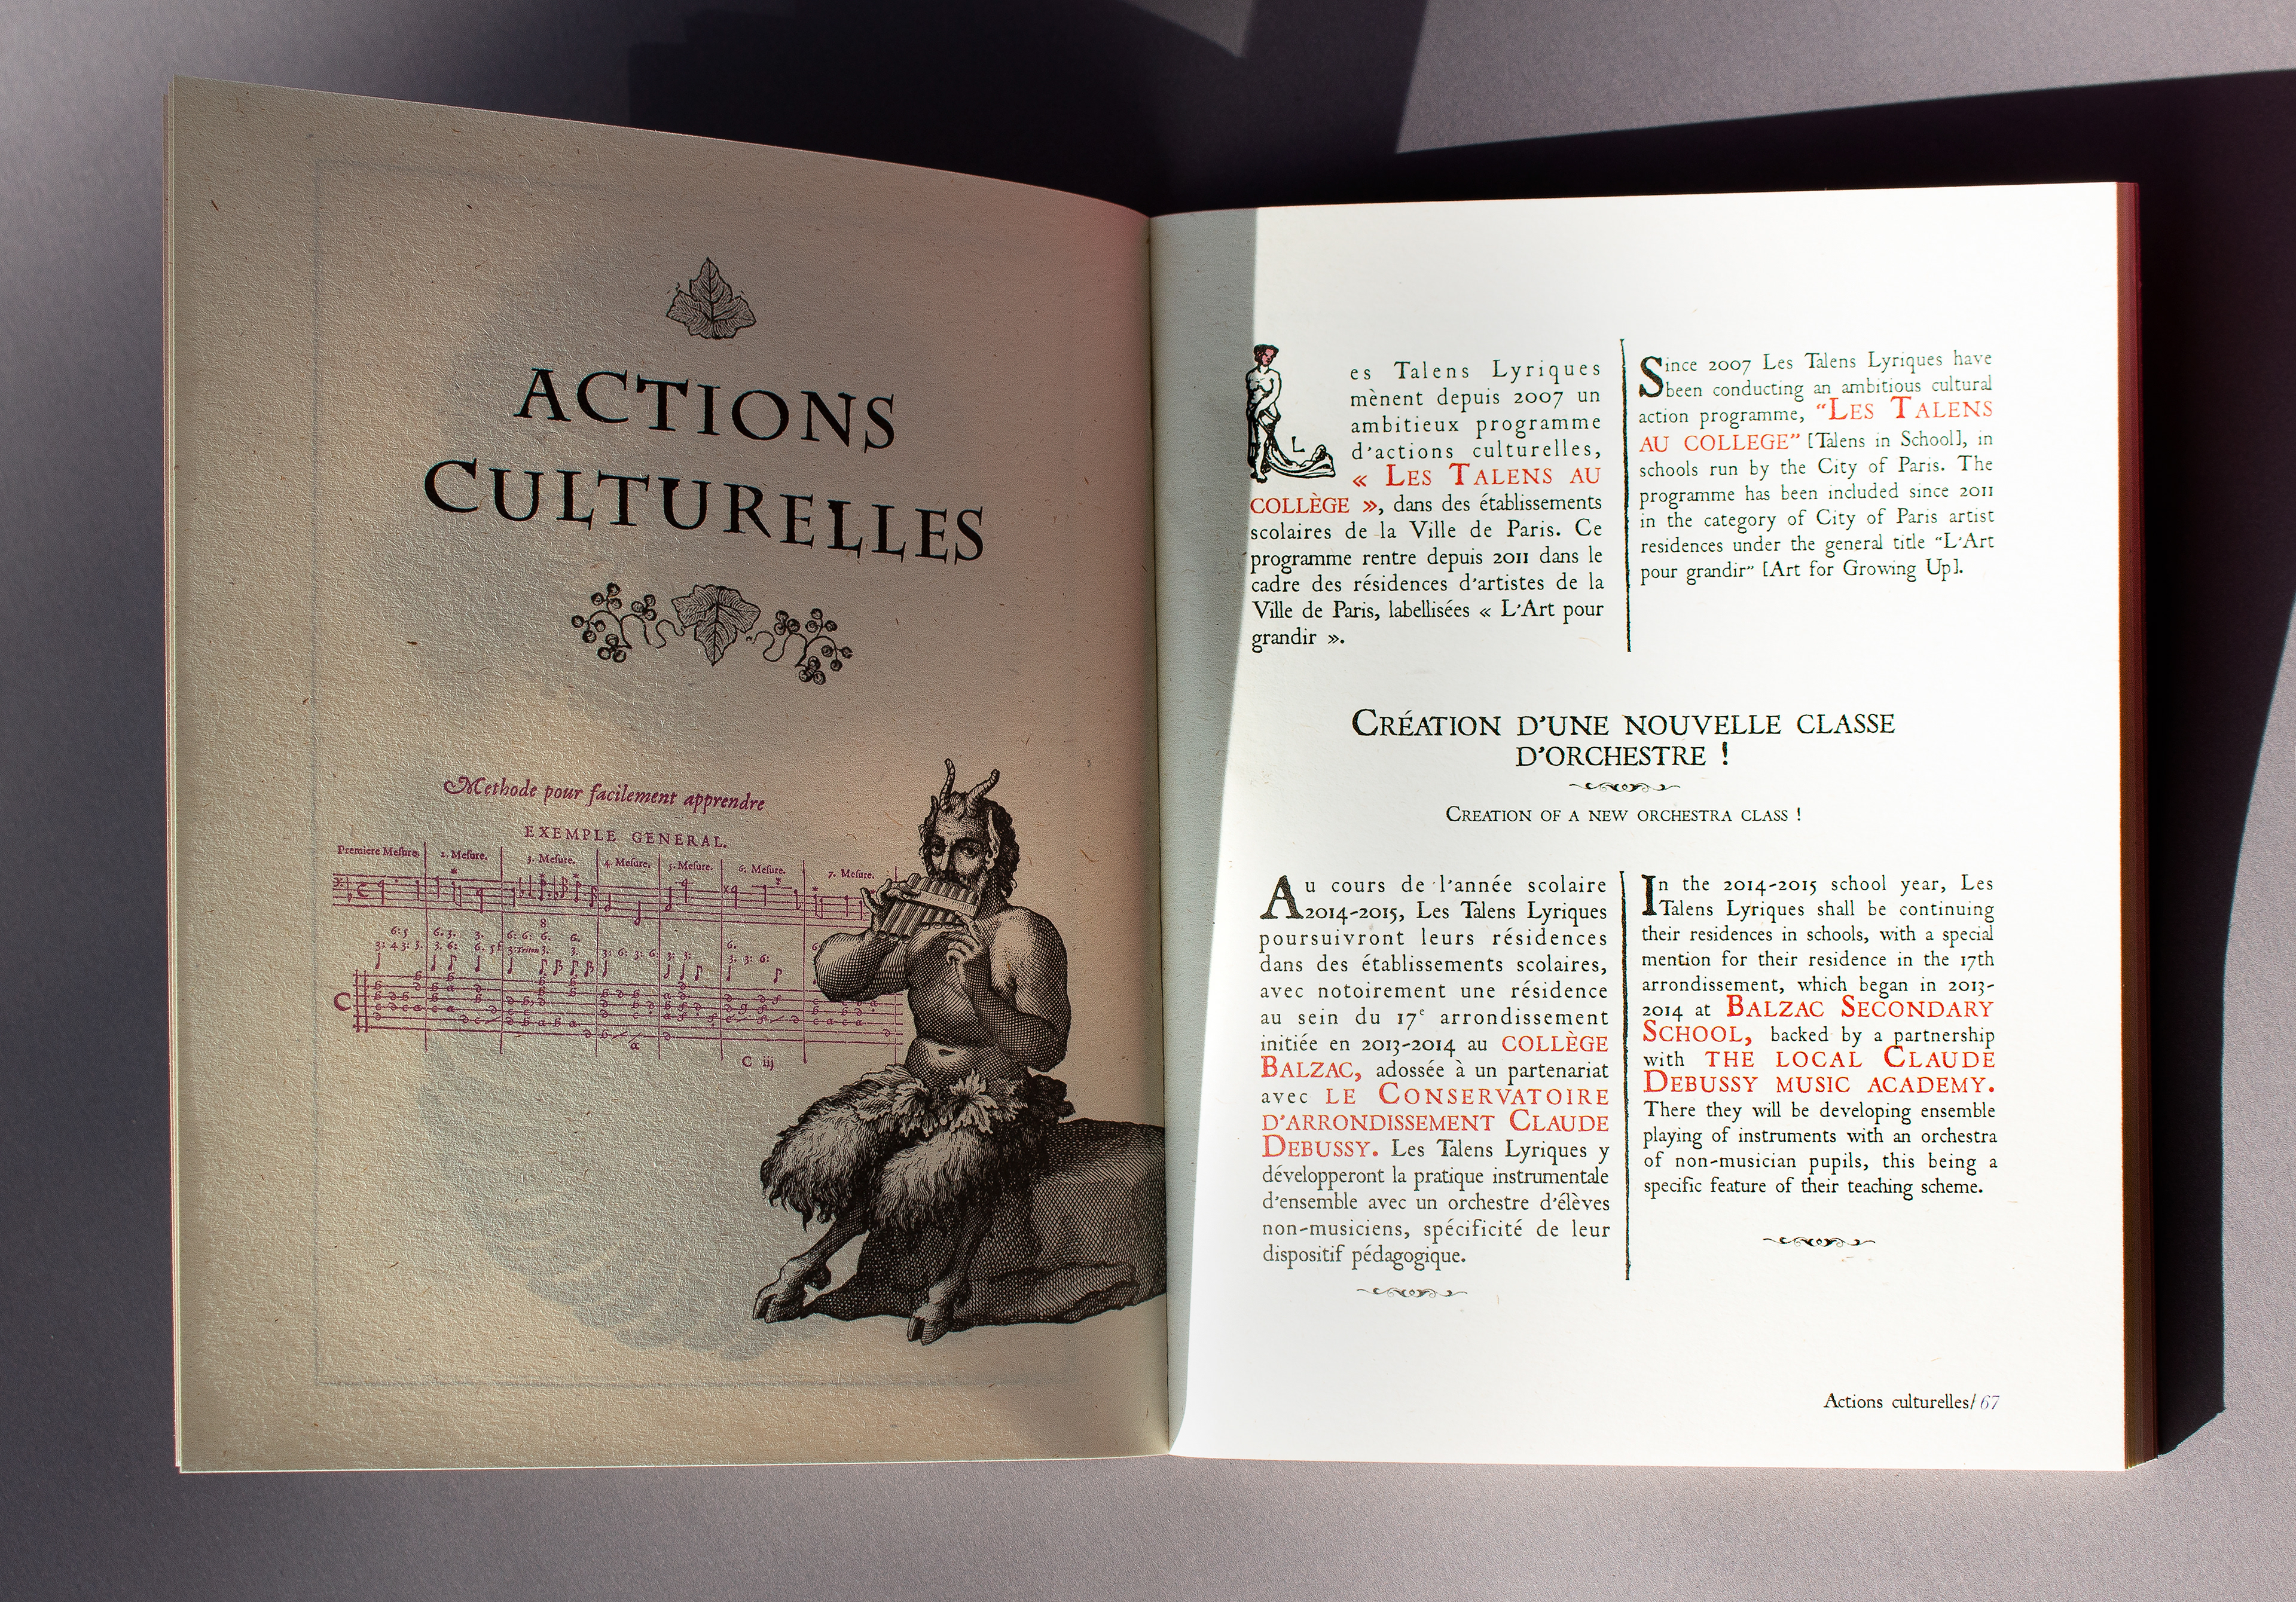 ACTIONS
CULTURELLES
Methode pour facilement apprendre
EXEMPLE GENERAL.
Premiere Meſure. 2. Meſure. 3. Meſure. 4. Meſure. 5. Meſure. 6. Meſure. 7. Meſure.
C iij
Les Talens Lyriques
mènent depuis 2007 un
ambitieux programme
d'actions culturelles,
« Les Talens au
collège », dans des établissements
scolaires de la Ville de Paris. Ce
programme rentre depuis 2011 dans le
cadre des résidences d'artistes de la
Ville de Paris, labellisées « L'Art pour
grandir ».
Since 2007 Les Talens Lyriques have
been conducting an ambitious cultural
action programme, “Les Talens
au college” [Talens in School], in
schools run by the City of Paris. The
programme has been included since 2011
in the category of City of Paris artist
residences under the general title “L'Art
pour grandir” [Art for Growing Up].
Création d'une nouvelle classe
d'orchestre !
Creation of a new orchestra class !
Au cours de l'année scolaire
2014-2015, Les Talens Lyriques
poursuivront leurs résidences
dans des établissements scolaires,
avec notoirement une résidence
au sein du 17e arrondissement
initiée en 2013-2014 au collège
Balzac, adossée à un partenariat
avec le Conservatoire
d'arrondissement Claude
Debussy. Les Talens Lyriques y
développeront la pratique instrumentale
d'ensemble avec un orchestre d'élèves
non-musiciens, spécificité de leur
dispositif pédagogique.
In the 2014-2015 school year, Les
Talens Lyriques shall be continuing
their residences in schools, with a special
mention for their residence in the 17th
arrondissement, which began in 2013-
2014 at Balzac Secondary
School, backed by a partnership
with the local Claude
Debussy music academy.
There they will be developing ensemble
playing of instruments with an orchestra
of non-musician pupils, this being a
specific feature of their teaching scheme.
Actions culturelles/ 67